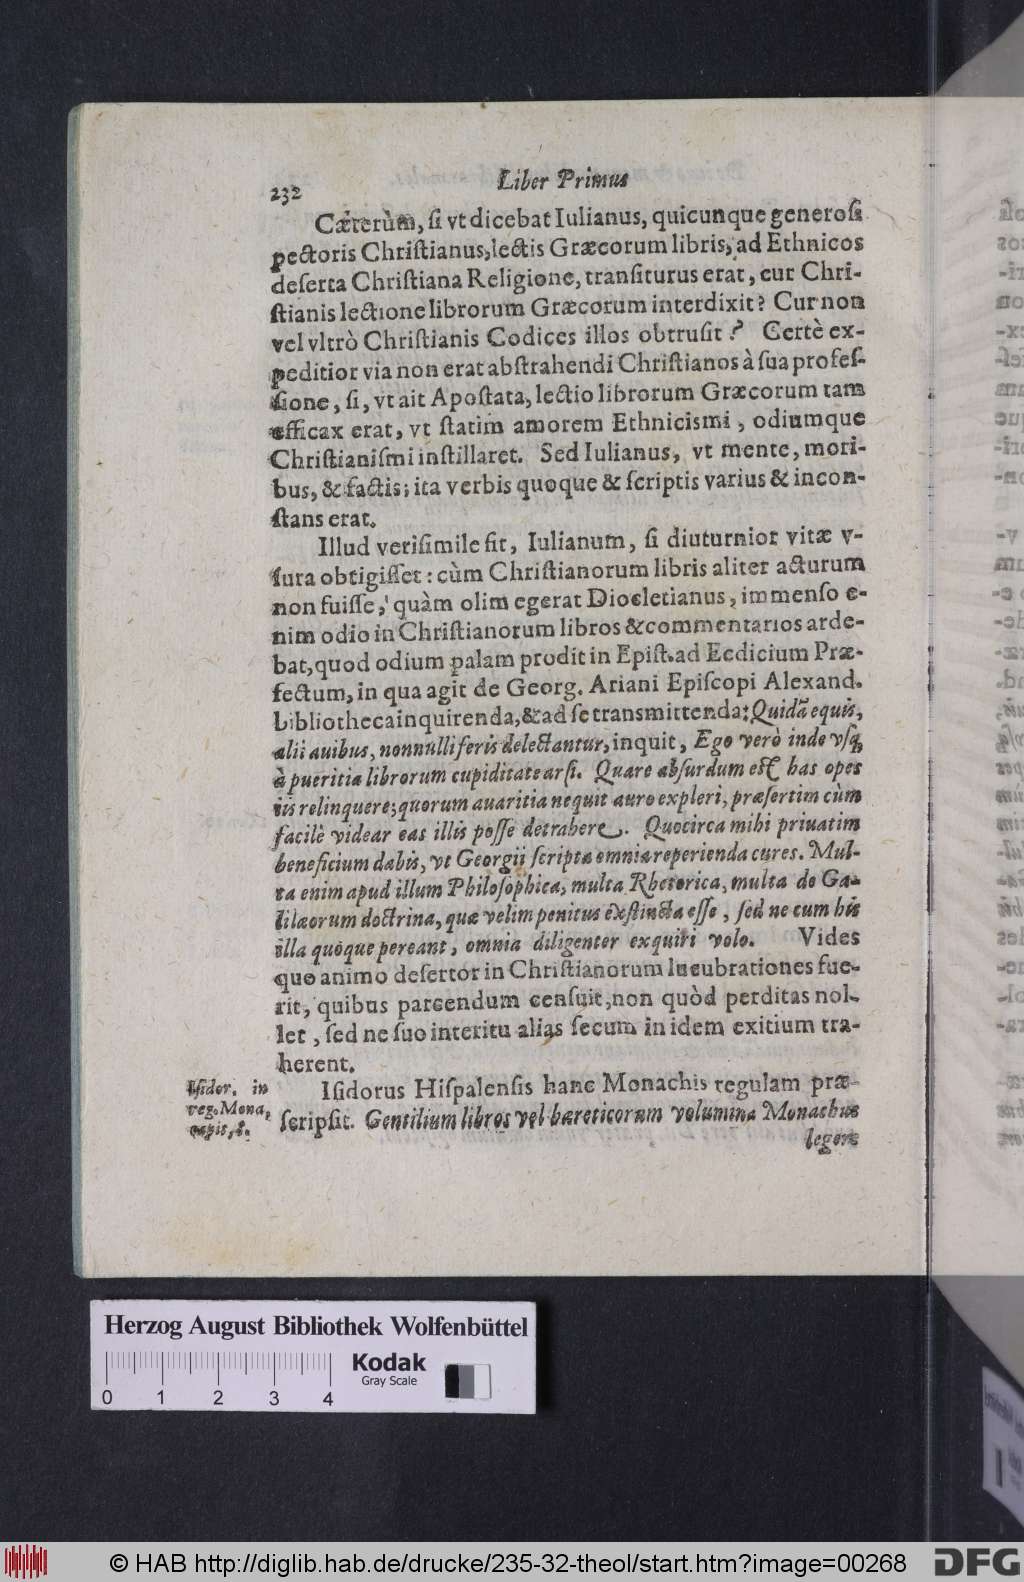 232
Liber Primus
Cæterùm, ſi vt dicebat Iulianus, quicunque generoſi
pectoris Chriſtianus, lectis Græcorum libris, ad Ethnicos
deſerta Chriſtiana Religione, tranſiturus erat, cur Chri-
ſtianis lectione librorum Græcorum interdixit? Cur non
vel vltrò Chriſtianis Codices illos obtruſit? Certè ex-
peditior via non erat abſtrahendi Chriſtianos à ſua profeſ-
ſione, ſi, vt ait Apoſtata, lectio librorum Græcorum tam
efficax erat, vt ſtatim amorem Ethnicismi, odiumque
Chriſtianiſmi inſtillaret. Sed Iulianus, vt mente, mori-
bus, & factis; ita verbis quoque & ſcriptis varius & incon-
ſtans erat.
Illud veriſimile ſit, Iulianum, ſi diuturnior vitæ v-
ſura obtigiſſet: cùm Chriſtianorum libris aliter acturum
non fuiſſe, quàm olim egerat Diocletianus, immenſo e-
nim odio in Chriſtianorum libros & commentarios arde-
bat, quod odium palam prodit in Epiſt. ad Ecdicium Præ-
fectum, in qua agit de Georg. Ariani Epiſcopi Alexand.
bibliotheca inquirenda, & ad ſe transmittenda: Quidã equis,
alii auibus, nonnulli feris delectantur, inquit, Ego verò inde vſq;
à pueritia librorum cupiditate arſi. Quare abſurdum eſt has opes
iis relinquere; quorum auaritia nequit auro expleri, præſertim cùm
facilè videar eas illis poſſe detrahere. Quocirca mihi priuatim
beneficium dabis, vt Georgii ſcripta omnia reperienda cures. Mul-
ta enim apud illum Philoſophica, multa Rhetorica, multa de Ga-
lilæorum doctrina, quæ velim penitus exſtincta eſſe, ſed ne cum his
illa quoque pereant, omnia diligenter exquiri volo. Vides
quo animo deſertor in Chriſtianorum lucubrationes fue-
rit, quibus parcendum cenſuit, non quòd perditas nol-
let, ſed ne ſuo interitu alias ſecum in idem exitium tra-
herent.
Iſidor. in
reg. Mona.
capit. 8.
Iſidorus Hiſpalenſis hanc Monachis regulam præ-
ſcripſit. Gentilium libros vel hæreticorum volumina Monachus
legere
Herzog August Bibliothek Wolfenbüttel
Kodak
Gray Scale
0 1 2 3 4
© HAB http://diglib.hab.de/drucke/235-32-theol/start.htm?image=00268
DFG